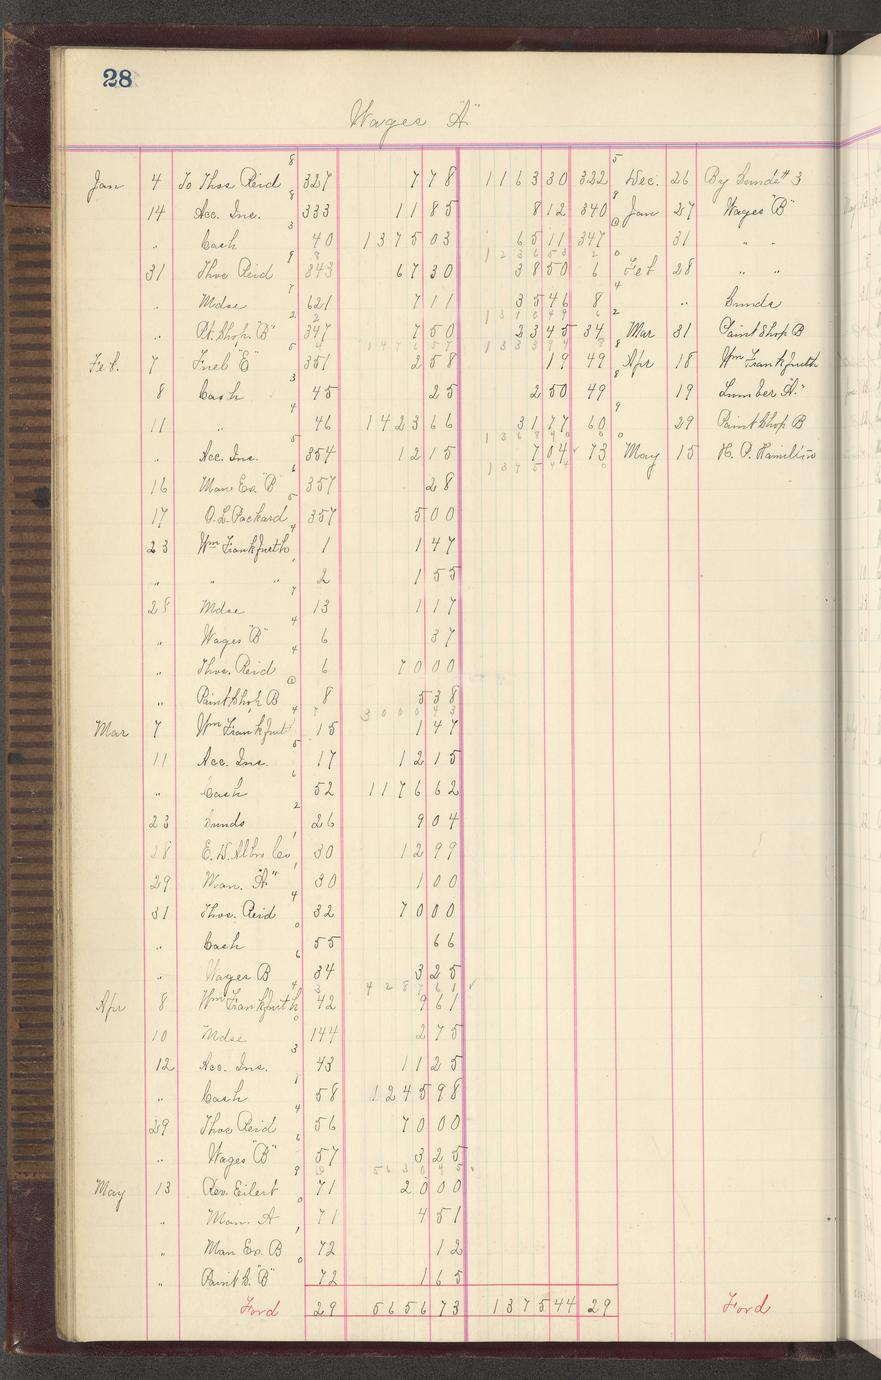 28
Wages "A"
Jan 4 To Thos Reid 8 327 7 78 1163 30 322 5 Dec. 26 By Sunds # 3
14 Acc. Ins. 8 333 11 85 8 12 340 8 Jan 27 Wages "B"
" Cash 3 40 1375 03 65 11 347 31 " "
12 3 6 5 3 2
31 Thos Reid 9 343 67 30 38 50 6 0 Feb 28 " "
" Mdse 7 621 7 11 35 46 8 4 " Sunds
1 3 1 0 4 9 6
" Pt. Shop "B" 2 347 7 50 23 45 34 2 Mar 31 Paint Shop B
1 4 7 6 5 7 1 3 3 3 9 4 8
Feb. 7 Fuel "E" 5 351 2 58 19 49 8 Apr 18 Wm Frankfurth
8 Cash 3 45 25 2 50 49 8 19 Lumber "A"
11 " 4 46 1423 66 31 77 60 9 29 Paint Shop B
1 3 6 8 4 0 0
" Acc. Ins. 5 354 12 15 7 04 ✓ 73 0 May 15 H. P. Hamilton
1 3 7 5 4 4 0
16 Man Ex. "B" 6 357 28
17 O. L. Packard 5 357 5 00
23 Wm Frankfurth 4 1 1 47
" " " 1 2 1 55
28 Mdse 7 13 1 17
" Wages "B" 4 6 37
" Thos. Reid 4 6 70 00
" Paint Shop B 8 5 38
3 0 0 0 4 3
Mar 7 Wm Frankfurt 4 15 1 47
11 Acc. Ins. 5 17 12 15
" Cash 6 52 1176 62
23 Sunds 2 26 9 04
28 E. W. Albro Co 1 30 12 99
29 Man. "A" 1 30 1 00
31 Thos. Reid 4 32 70 00
" Cash 0 55 66
" Wages B 6 34 3 25
4 2 8 7 6 1 ✓
Apr 8 Wm Frankfurth 4 42 9 61
10 Mdse 0 144 2 75
12 Acc. Ins. 3 43 11 25
" Cash 1 58 1245 98
29 Thos Reid 4 56 70 00
" Wages "B" 6 57 3 25
5 6 3 0 4 5
May 13 Rev. Eilert 9 71 20 00
" Man. A 0 71 4 51
" Man Ex. B 1 72 12
" Paint S. "B" 0 72 1 65
Ford 29 5656 73 1375 44 29 Ford